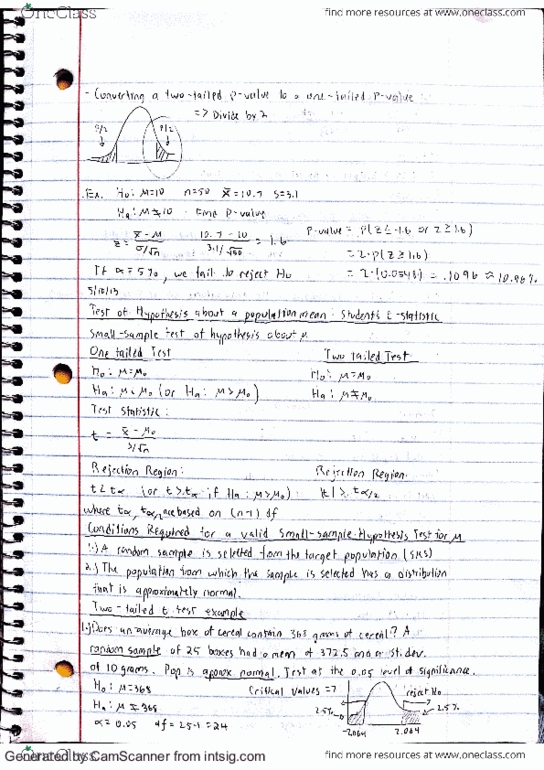 OneClass
find more resources at www.oneclass.com
- Converting a two-tailed P-value to a one-tailed P-value
=> Divide by 2
P/2
P/2
Ex. H₀: μ=10 n=50 x̄=10.7 s=3.1
Hₐ: μ≠10 Find P-value
z = x̄-μ / σ/√n = 10.7-10 / 3.1/√50 = 1.6
P-value = P(z≤-1.6 or z≥1.6)
= 2·P(z≥1.6)
= 2·(0.0548) = .1096 ≈ 10.96%
If α=5%, we fail to reject H₀
Test of Hypothesis about a population mean: Student's t-statistic
Small-sample test of hypothesis about μ
One tailed Test
Two Tailed Test
H₀: μ=μ₀
H₀: μ=μ₀
Hₐ: μ<μ₀ (or Hₐ: μ>μ₀)
Hₐ: μ≠μ₀
Test Statistic:
t = x̄-μ₀ / s/√n
Rejection Region:
Rejection Region:
t<tα (or t>tα if Hₐ: μ>μ₀)
|t|>tα/2
where tα, tα/2 are based on (n-1) df
Conditions Required for a valid Small-sample Hypothesis Test for μ
1.) A random sample is selected from the target population (SRS)
2.) The population from which the sample is selected has a distribution
that is approximately normal.
Two-tailed t test example
1.) Does an average box of cereal contain 368 grams of cereal? A
random sample of 25 boxes had a mean of 372.5 and a st. dev.
of 10 grams. Pop is aprox normal. Test at the 0.05 level of significance.
H₀: μ=368
Critical values =>
reject H₀
Hₐ: μ≠368
2.5%
2.5%
α=0.05 df=25-1=24
-2.064
2.064
Generated by CamScanner from intsig.com
find more resources at www.oneclass.com